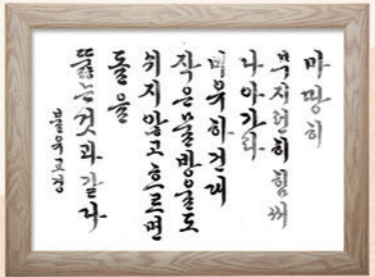 마땅히
부지런히 힘써
나아가라
비유하건대
작은 물방울도
쉬지않고 흐르면
돌을
뚫는것과 같다
불유교경